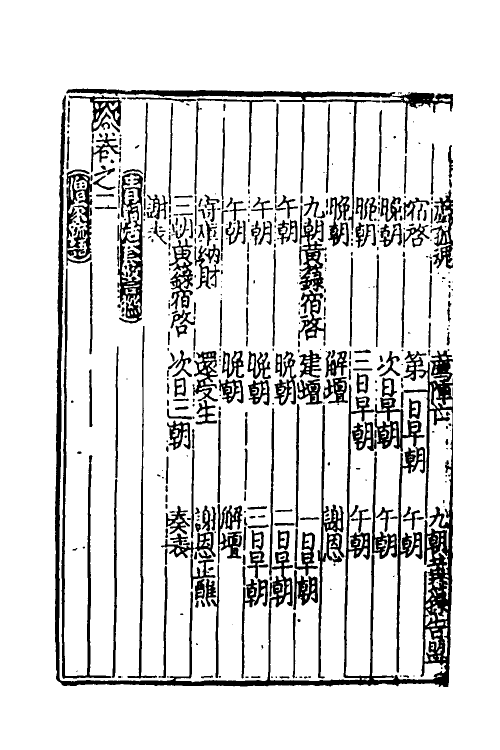 薦孤魂 薦陣亡 九朝黃籙告盟
宿啓 第一日早朝 午朝
晚朝 次日早朝 午朝
晚朝 三日早朝 午朝
晚朝 解壇 謝恩
九朝黃籙宿啓 建壇 一日早朝
午朝 晚朝 二日早朝
午朝 晚朝 三日早朝
午朝 晚朝 解壇
寄庫納財 還受生 謝恩正醮
三朝黃籙宿啓 次日三朝 奏表
謝表
卷之二